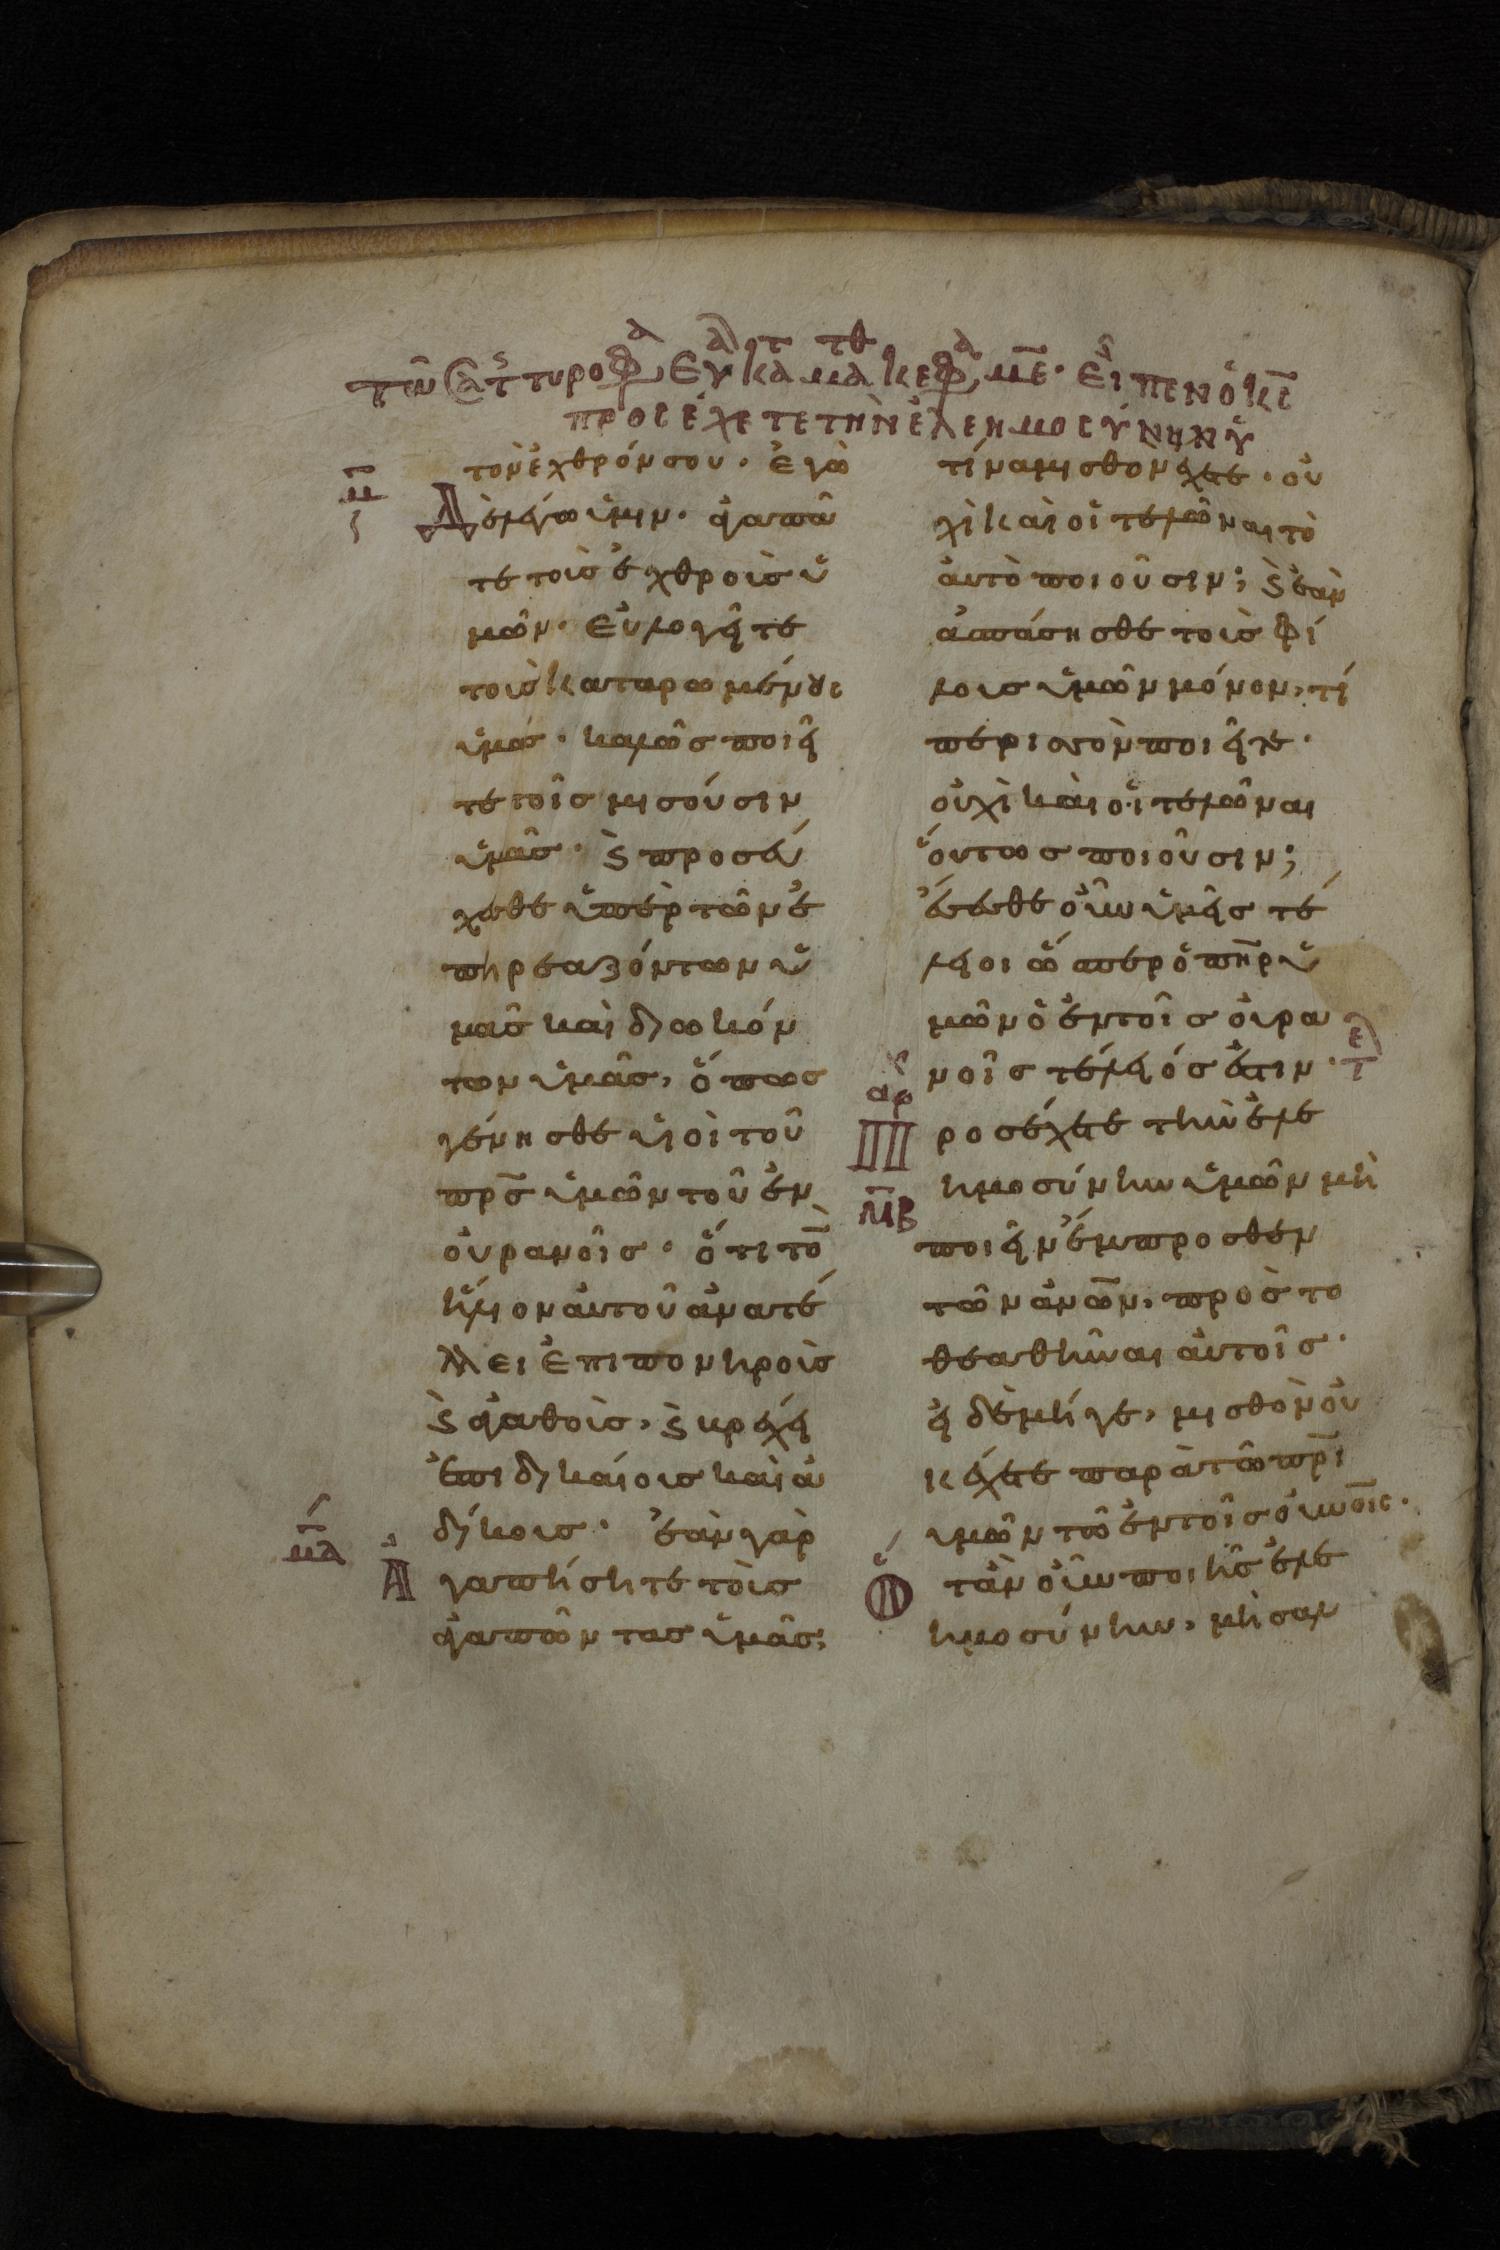 τῶ Σα τ τυροφα Ευα κατ ματθ κεφα με· Εἶπεν ὁ κς
προσέχετε τὴν ἐλεημοσύνην ὑ
τὸν ἐχθρόν σου· ἐγὼ
μ
Δὲ λέγω ὑμιν· ἀγαπᾶ
τε τοὺς ἐχθροὺς ὑ
μῶν· εὐλογεῖτε
τοὺς καταρωμένους
ὑμάς· καλῶς ποιεῖ
τε τοῖς μισούσιν
ὑμᾶς· ϗ προσεύ
χεσθε ὑπὲρ τῶν ἐ
πηρεαζόντων ὑ
μας καὶ διωκόν
των ὑμᾶς, ὅπως
γένησθε υἱοὶ τοῦ
πρς ὑμῶν τοῦ ἐν
οὐρανοῖς· ὅτι τὸ
ἥλιον αὐτοῦ ἀνατέ
λλει ἐπι πονηροὺς
ϗ ἀγαθοὺς, ϗ βρέχει
ἐπι δικαίους καὶ ἀ
δίκους· ἐὰν γὰρ
μα
Ἀ γαπήσητε τοὺς
ἀγαπῶντας ὑμᾶς,
τίνα μισθὸν ἔχετε· οὐ
χὶ καὶ οἱ τελῶναι τὸ
ἀυτὸ ποιοῦσιν; ϗ ἐὰν
ἀσπάσησθε τοὺς φί
λους ὑμῶν μόνον, τί
περισσὸν ποιεῖτε·
οὐχὶ καὶ οἱ τελῶναι
ὅυτως ποιοῦσιν;
ἔσεσθε οὖν ὑμεῖς τέ
λειοι ὥσπερ ὁ πηρ ὑ
μῶν ὁ ἐν τοῖς οὐρα
νοῖς τέλειός ἐστιν· τε
αρ
Π ροσέχετε τὴν ἐλε
ημοσύνην ὑμῶν μὴ
μβ
ποιεῖν ἔμπροσθέν
τῶν ἀνῶν, πρὸς το
θεαθῆναι ἀυτοῖς·
εἰ δὲ μήγε, μισθὸν οὐ
κ ἔχετε παρὰ τῶ πρι
ὑμῶν τῶ ἐν τοῖς οὐνοις·
Ὅ ταν οὖν ποιῆς ἐλε
ημοσύνην, μὴ σαλ